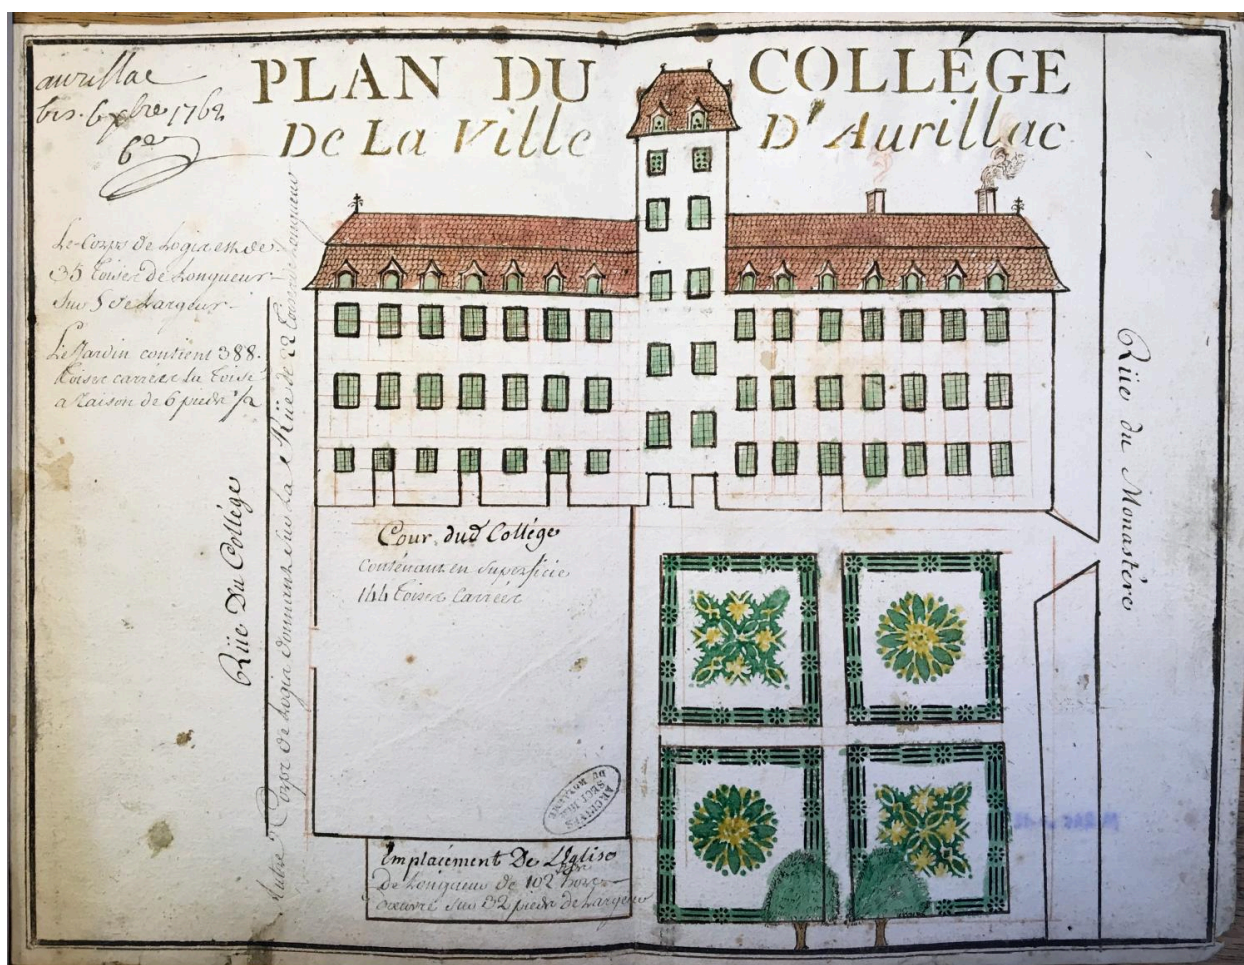 PLAN DU COLLÉGE
De La Ville D'Aurillac
aurillac
bis. 6 xbre 1762
6e
Le Corps de Logis est de
35 toises de Longueur
sur 5 de Largeur.
Le Jardin contient 388.
toises carrées la toise
a raison de 6 pieds 1/2
Rüe Du Collége
Autre Corps de Logis donnant sur la Rüe de 22 toises de Longueur
Cour dud Collége
contenant en superficie
144 toises carrées
Emplacement De L'Eglise
de Longueur de 102 hors
œuvre sur 32 pieds de Largeur
Rüe du Monastére
ARCHIVES
DU ROYAUME